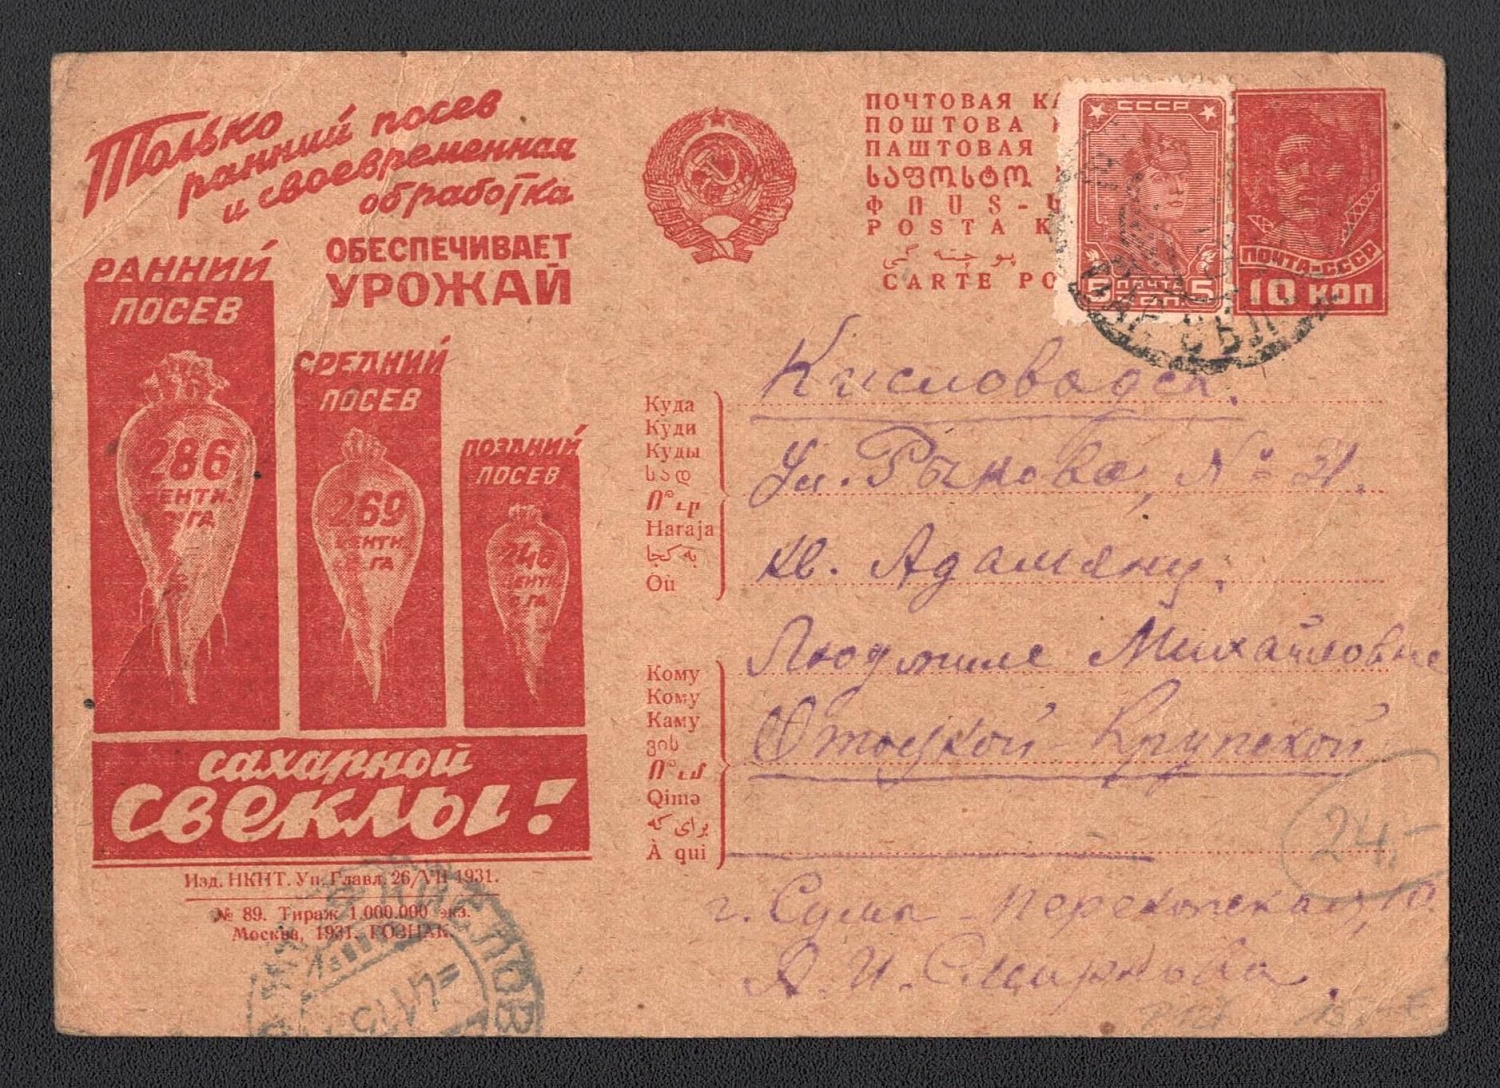 Только
ранний посев
и своевременная
обработка
ОБЕСПЕЧИВАЕТ
УРОЖАЙ
РАННИЙ
ПОСЕВ
286
ЕНТН.
ГА
СРЕДНИЙ
ПОСЕВ
269
ЕНТН.
ГА
ПОЗДНИЙ
ПОСЕВ
246
ЕНТН
ГА
сахарной
СВЕКЛЫ!
Изд. НКПТ. Уп. Главл. 26/VII 1931.
№ 89. Тираж 1.000.000 экз.
Москва, 1931. ГОЗНАК.
ПОЧТОВАЯ КА
ПОШТОВА
ПАШТОВАЯ
ՓՈՍ-
POSTA K
CARTE PO
СССР
5 ПОЧТА 5
КОП.
ПОЧТА-СССР
10 КОП
Куда
Куди
Куды
სად
Ո՞ւր
Haraja
به کجا
Où
Кисловодск.
Ул. Рыкова, № 21.
кв. Адамяну.
Кому
Кому
Каму
ვის
Ո՞ւմ
Qimə
برای که
À qui
Людмиле Михайловне
Отоцкой-Крупской
г. Сумы Перекопская, 10.
А. И. Смирнова.
24.-